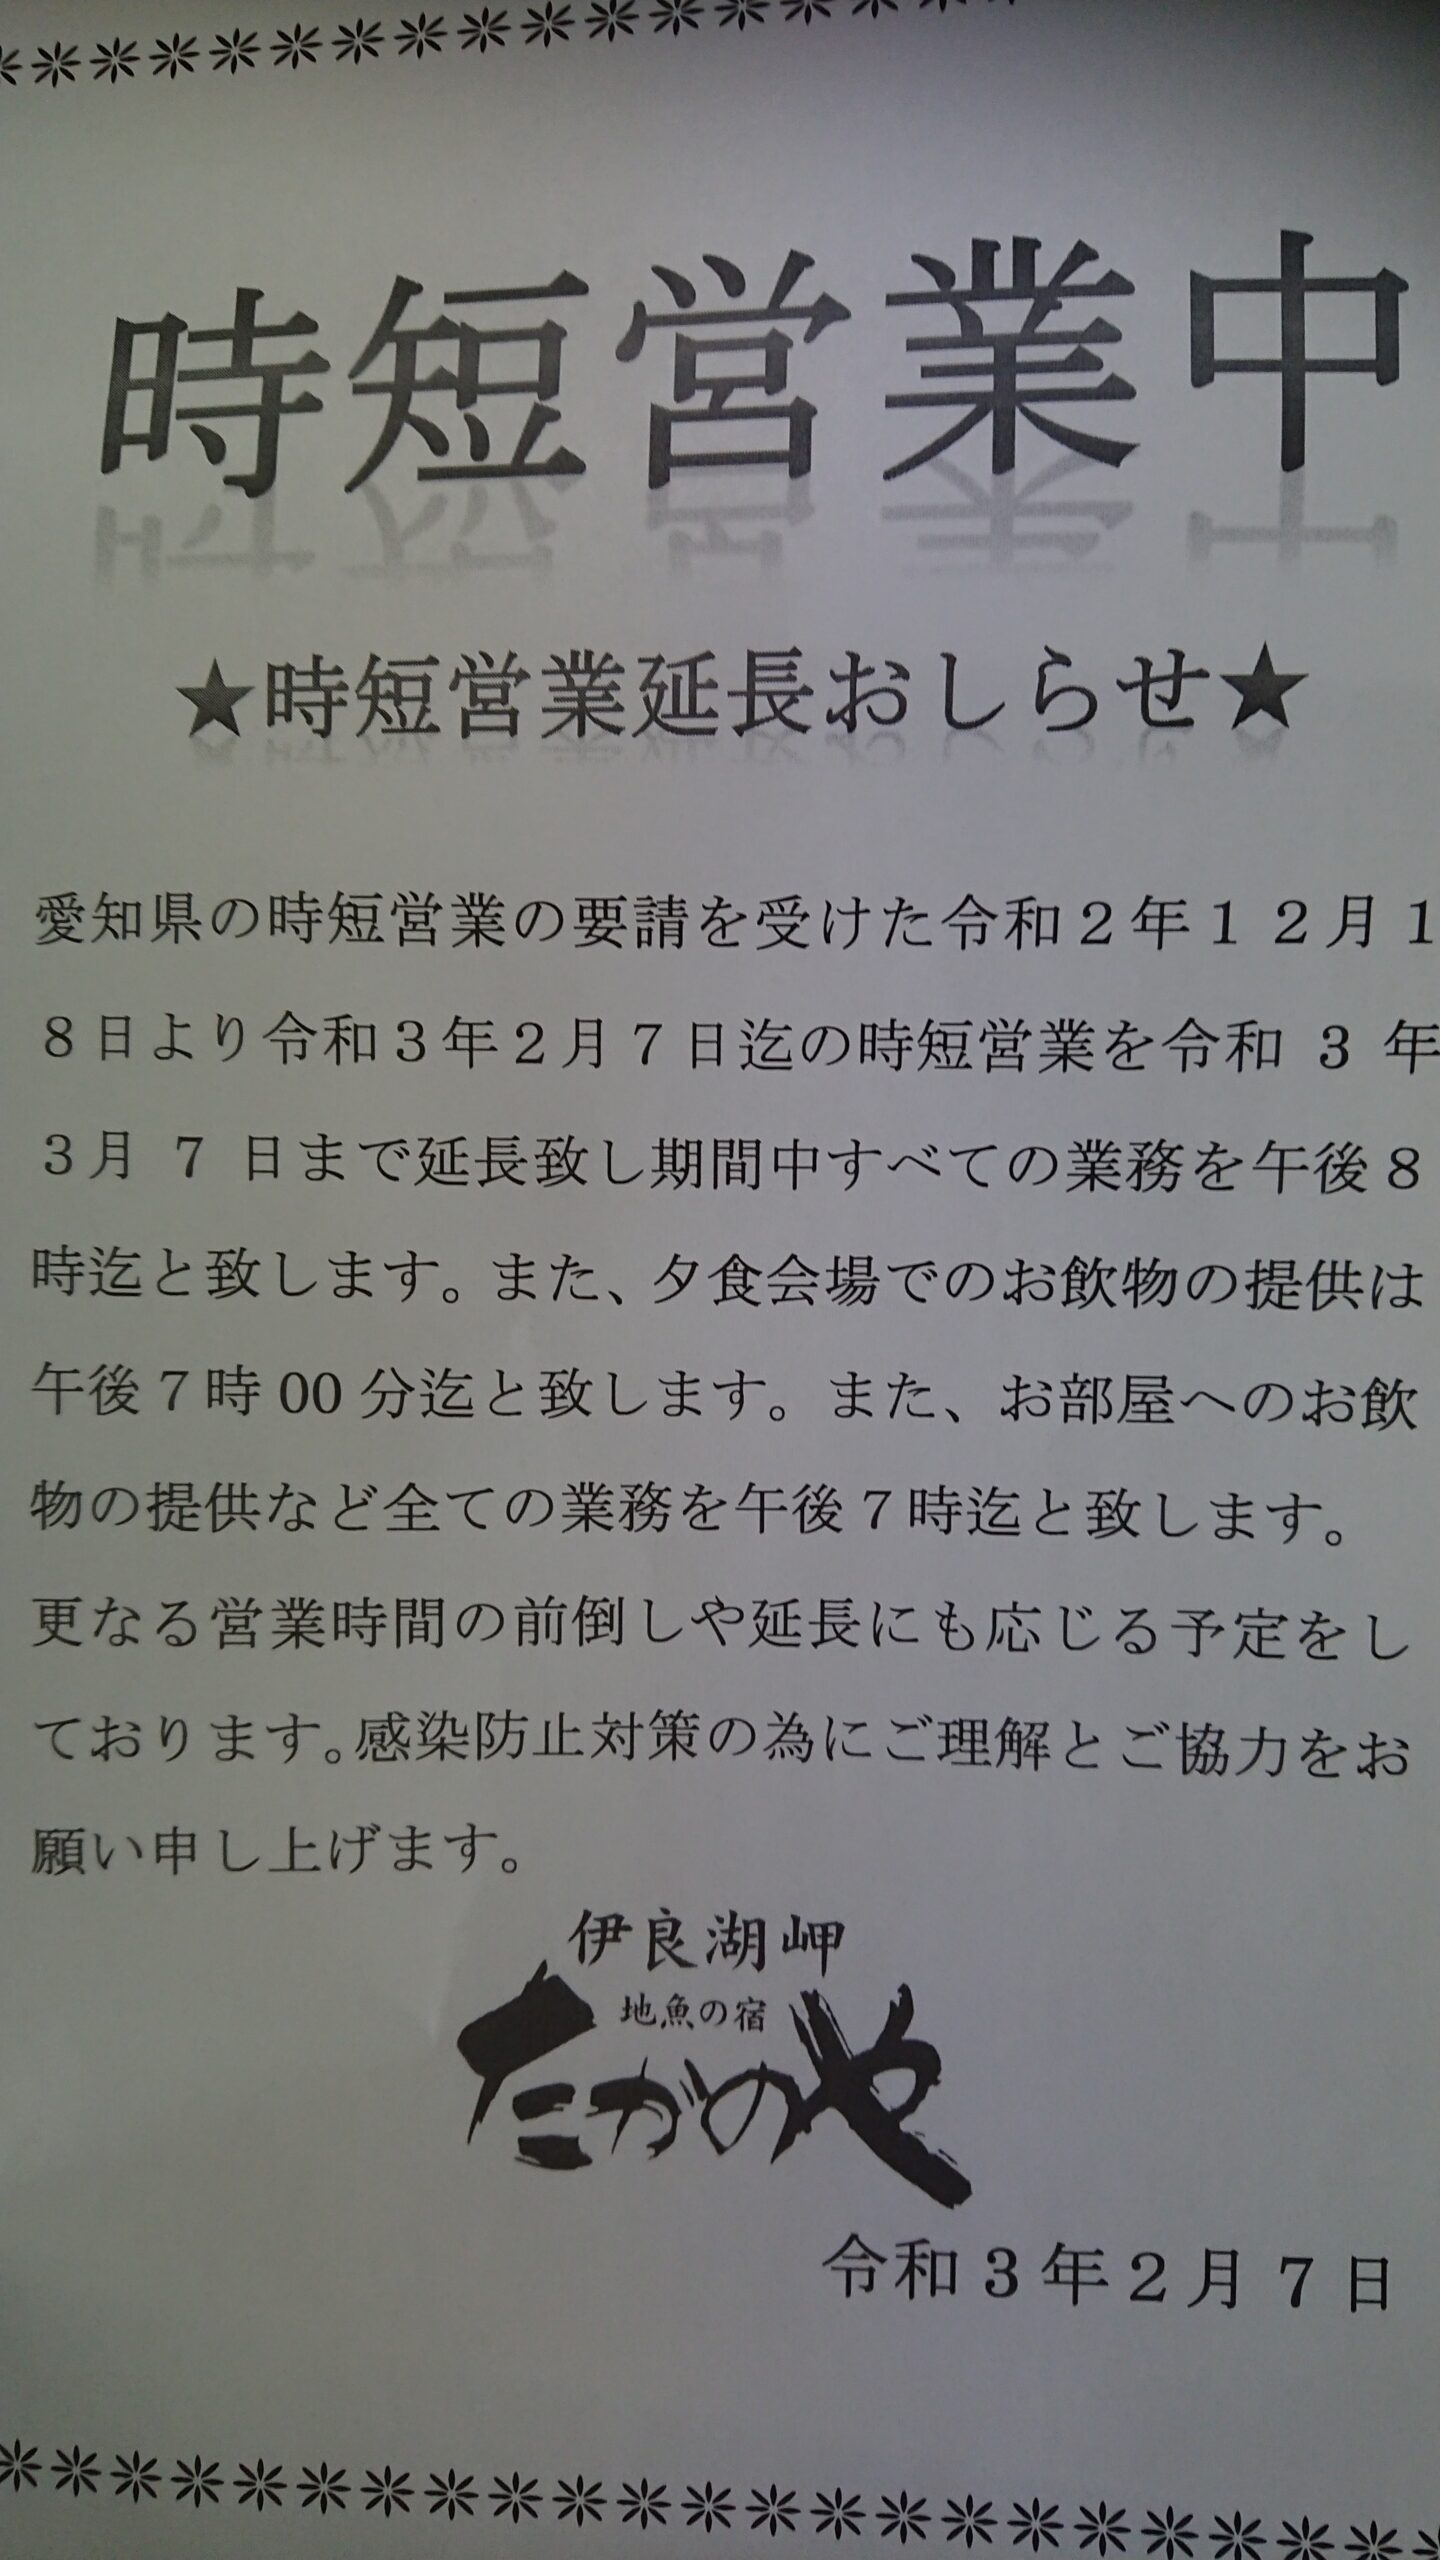 時短営業中
★時短営業延長おしらせ★
愛知県の時短営業の要請を受けた令和２年１２月１
８日より令和３年２月７日迄の時短営業を令和 3 年
３月 7 日まで延長致し期間中すべての業務を午後８
時迄と致します。また、夕食会場でのお飲物の提供は
午後７時 00 分迄と致します。また、お部屋へのお飲
物の提供など全ての業務を午後７時迄と致します。
更なる営業時間の前倒しや延長にも応じる予定をし
ております。感染防止対策の為にご理解とご協力をお
願い申し上げます。
伊良湖岬
地魚の宿
たがのや
令和３年２月７日